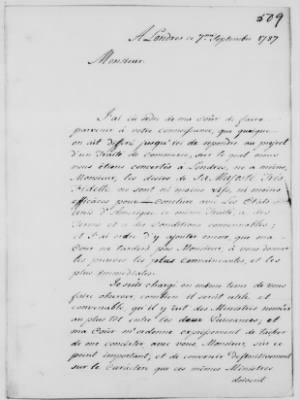 509
A Londres ce 7me Septembre 1787
Monsieur.
J'ai eu ordre de ma Cour de faire
parvenir à votre connoissance, que quoique
on ait differé jusqu'ici de repondre au project
d'un Traité de Commerce, sur le quel nous
nous étions convertis à Londres,
Monsieur, les desirs de Sa Majesté Très
Fidelle ne sont ni moins vifs, ni moins
efficaces pour conclure avec les Etats
Unis d'Amerique ce même Traité, a des
Termes et a des conditions convenables;
et J'ai ordre d'y ajouter encor que ma
Cour ne tardera pas Monsieur, à vous donner
les preuves les plus convaincantes, et les
plus immediates.
Je suis chargé en même tems de vous
faire observer, combien il seroit utile et
convenable qu'il y eut des Ministres nommés
au plus tôt entre les deux Puissances; et
ma Cour m'ordonne expressement de tacher
de me concerter avec vous, Monsieur, sur ce
point important, et de convenir definitivement
sur le Caractere que ces mêmes Ministres
doivent